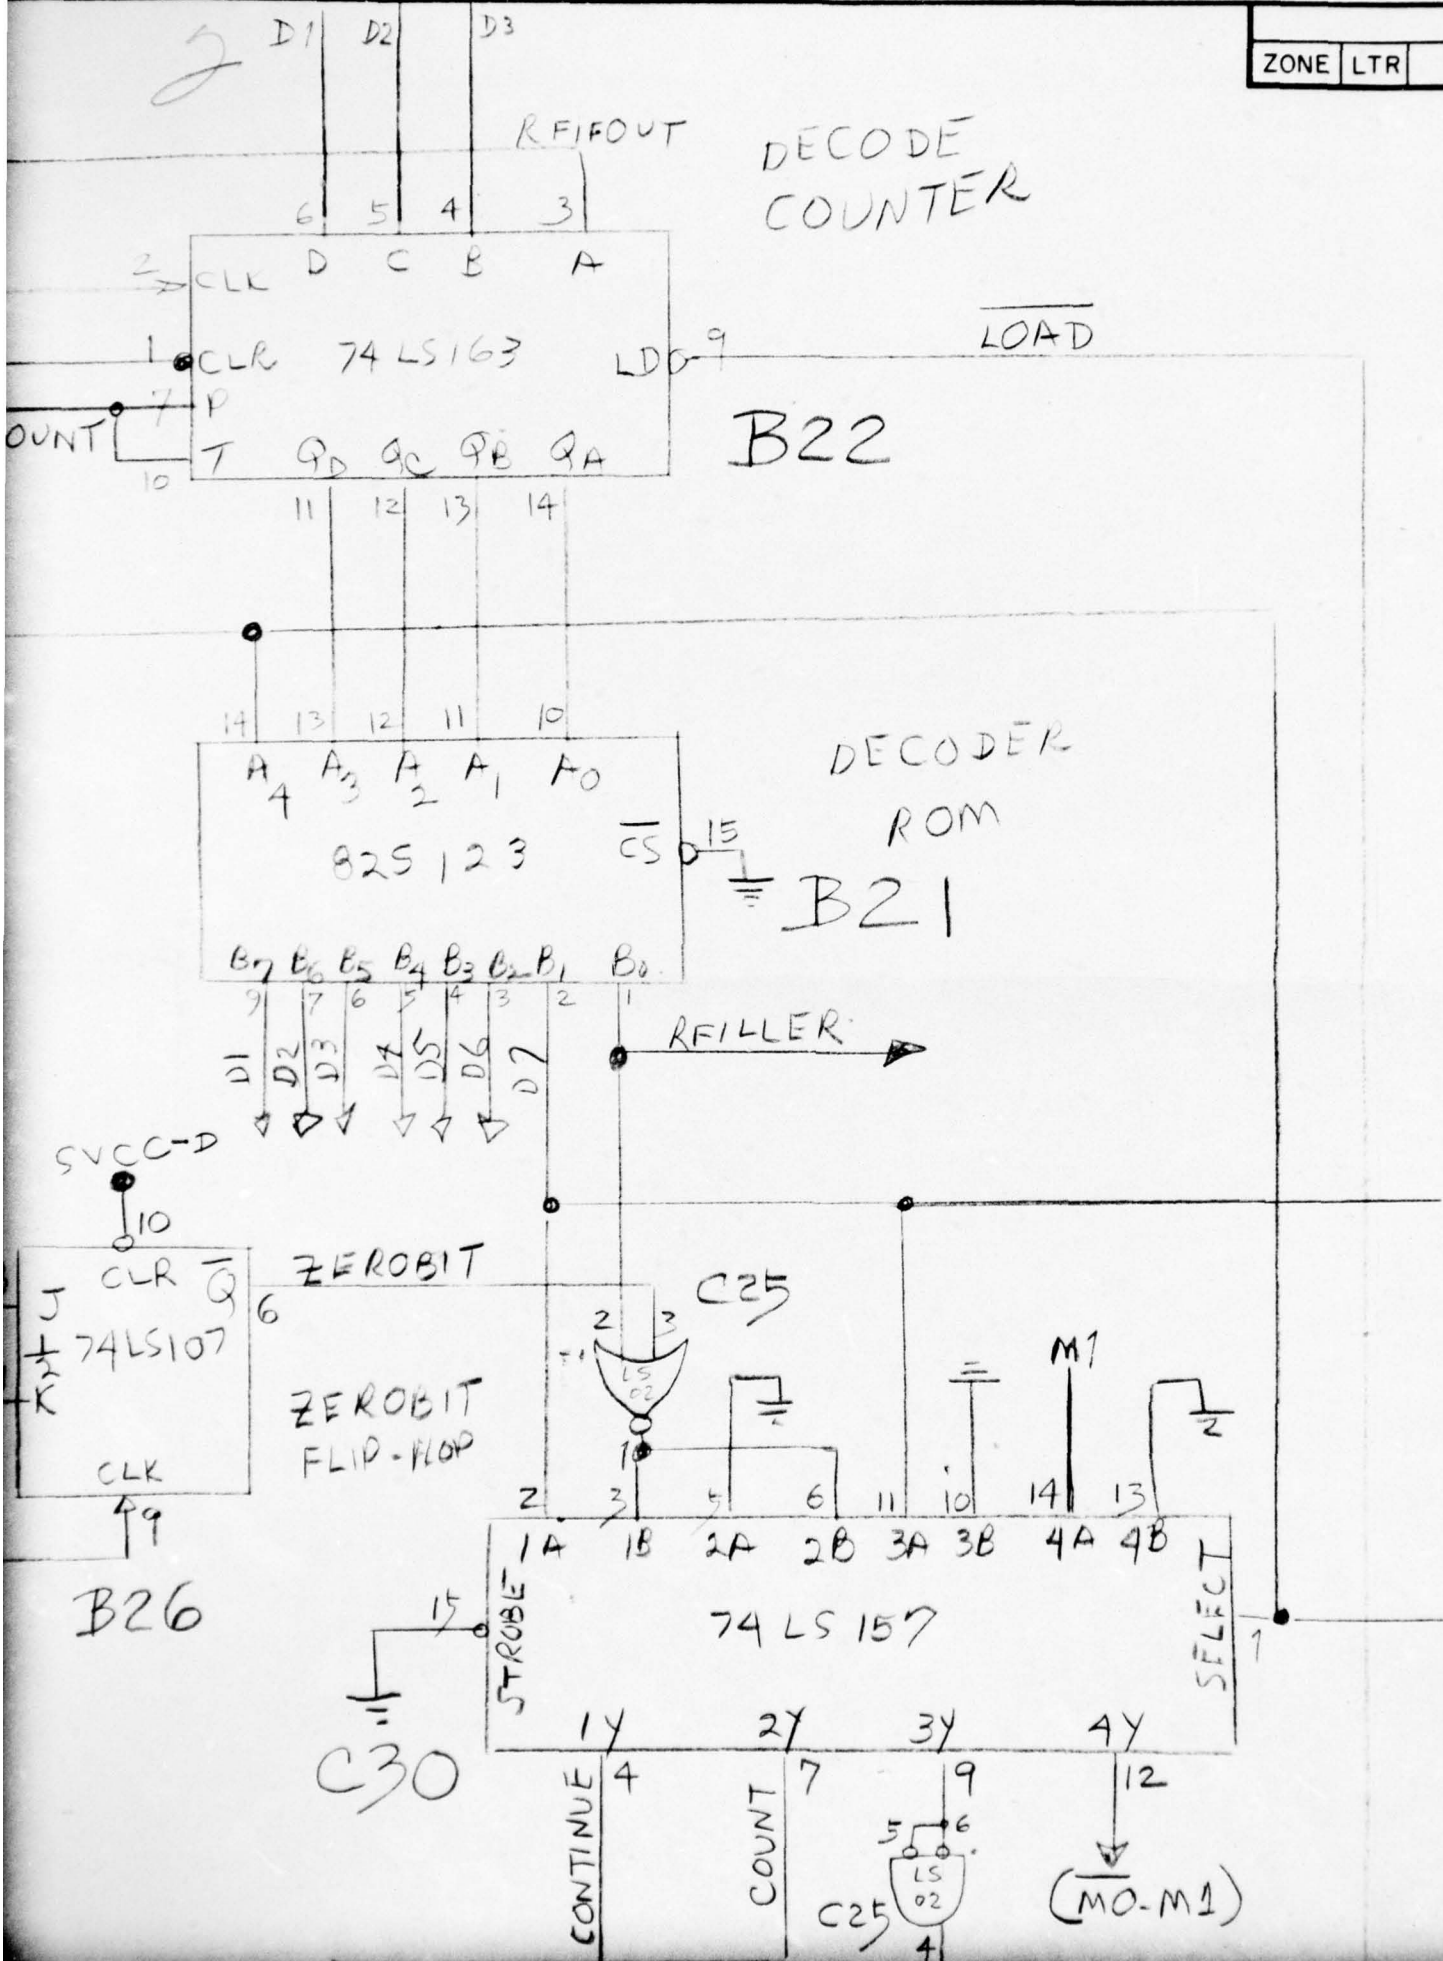 2
D1 D2 D3
ZONE LTR
RFIFOUT
DECODE
COUNTER
6 5 4 3
D C B A
2 CLK
1 CLR 74LS163 LD 9
LOAD
7 P
OUNT
T
10
QD QC QB QA
B22
11 12 13 14
14 13 12 11 10
A4 A3 A2 A1 A0
DECODER
ROM
82S123 CS 15
B21
B7 B6 B5 B4 B3 B2 B1 B0
9 7 6 5 4 3 2 1
D1 D2 D3 D4 D5 D6 D7
RFILLER
5VCC-D
10
CLR Q
ZEROBIT
6
J
74LS107
K
CLK
9
B26
ZEROBIT
FLIP-FLOP
C25
2 3
LS
02
1
M1
2 3 5 6 11 10 14 13
1A 1B 2A 2B 3A 3B 4A 4B
STROBE
15
74LS157
SELECT
1
C30
1Y 2Y 3Y 4Y
4 7 9 12
CONTINUE
COUNT
5 6
LS
02
C25
4
(M0-M1)